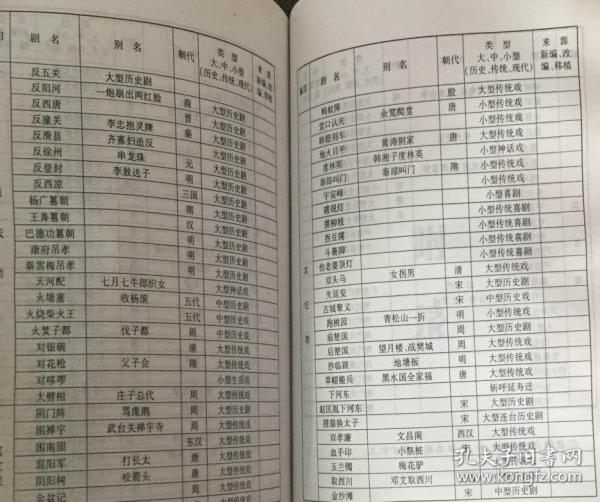 目 剧名 别名 朝代 类型 大、中、小型 (历史、传统、现代) 来源 新编、改编、移植
反五关 大型历史剧
反阳河 一炮崩出两红脸
反西唐 商 大型历史剧
反潼关 李忠抱灵牌 晋 大型历史剧
反滑县 齐寡妇造反 秦 大型历史剧
反徐州 串龙珠 大型历史剧
反登封 李敖送子 元 大型历史剧
反西凉 明 大型历史剧
杨广篡朝 三国 大型历史剧
王莽篡朝 隋 大型历史剧
巴德功篡朝 汉 大型历史剧
康府吊孝 明 大型历史剧
秦雪梅吊孝 明 大型传统戏
天河配 七月七牛郎织女 大型神话戏
火塔寨 收杨滚 五代 中型历史戏
火烧柴火王 五代 中型历史戏
火焚子都 伐子都 周 中型历史戏
对银碗 清 大型传统戏
对花枪 父子会 隋 大型传统戏
对哆啰 小型生活戏
大劈棺 庄子总代 周 大型传统戏
阴门阵 骂庞鹏 周 大型历史剧
困禅宇 武台关禅宇寺 周 大型传统戏
困南固 东汉 大型传统戏
混阳军 打长太 唐 大型传统戏
阴阳树 咬箭头 唐 大型传统戏
金盆记
剧名 别名 朝代 类型 大、中、小型 (历史、传统、现代) 来源 新编、改编、移植
蚂蚁阵 殷 大型传统戏
堂口认夫 余宽爬堂 小型传统戏
韩眼别车 黄涛别家 唐 小型传统戏
地火目平 韩湘子度林英 小型传统戏
度林英 小型神话戏
秦琼叫门 隋 小型传统戏
宇宙峰 小型喜剧
瞎现灯 小型传统戏
摸柳枝 小型传统喜剧
小型传统喜剧
斗裹脚 小型传统喜剧
怕老婆顶灯 小型喜剧
双头马 女拐男 清 大型传统戏
失延安 宋 大型历史戏
古城聚义 中型历史戏
跑桃园 青松山一折 明 小型传统戏
前楚国 周 大型历史剧
后楚国 望月楼、战樊城 周 大型传统戏
抄临颍 地塘板 明 大型传统戏
草帽搬兵 黑水国全家福 大型传统戏
下河东 斩呼延寿迁
赵匡胤下河东 宋 大型历史剧
狸猫换太子 宋 大型连台历史剧
双孝廉 文昌阁 西汉 大型传统戏
血手印 小祭桩 宋 大型传统戏
玉兰镯 梅花驴 大型传统戏
取西川 邓艾取西川 大型传统戏
金沙滩 宋 大型历史剧
其它类
孔夫子旧书网